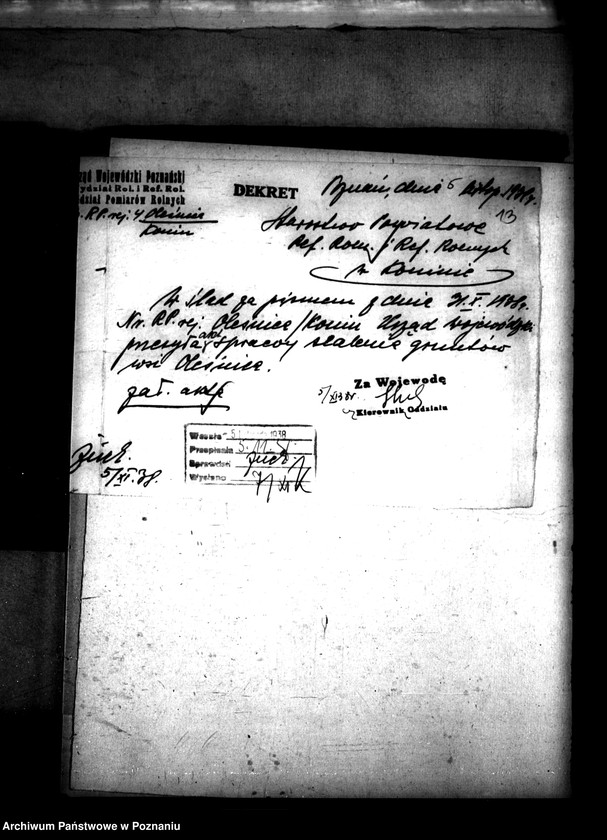 Urząd Wojewódzki Poznański
Wydział Rol. i Ref. Rol.
Oddział Pomiarów Rolnych
R.P. rej. 4 Oleśnica
Konin
DEKRET
Poznań, dnia 5 listop. 1938 r.
13
Starostwo Powiatowe
Ref. Roln. i Ref. Rolnych
w Koninie
W ślad za pismem z dnia 31.X.1938 r.
Nr. R.P. rej. Oleśnica/Konin Urząd Wojewódzki
przesyła akta sprawy scalenia gruntów
wsi Oleśnica.
zał. akta
Za Wojewodę
5/XI 38.
Kierownik Oddziału
Wpisała 5 1938
Przepisała 5.11.
Sprawdził
Wysłano 7/XI
5/XI.38.
Archiwum Państwowe w Poznaniu